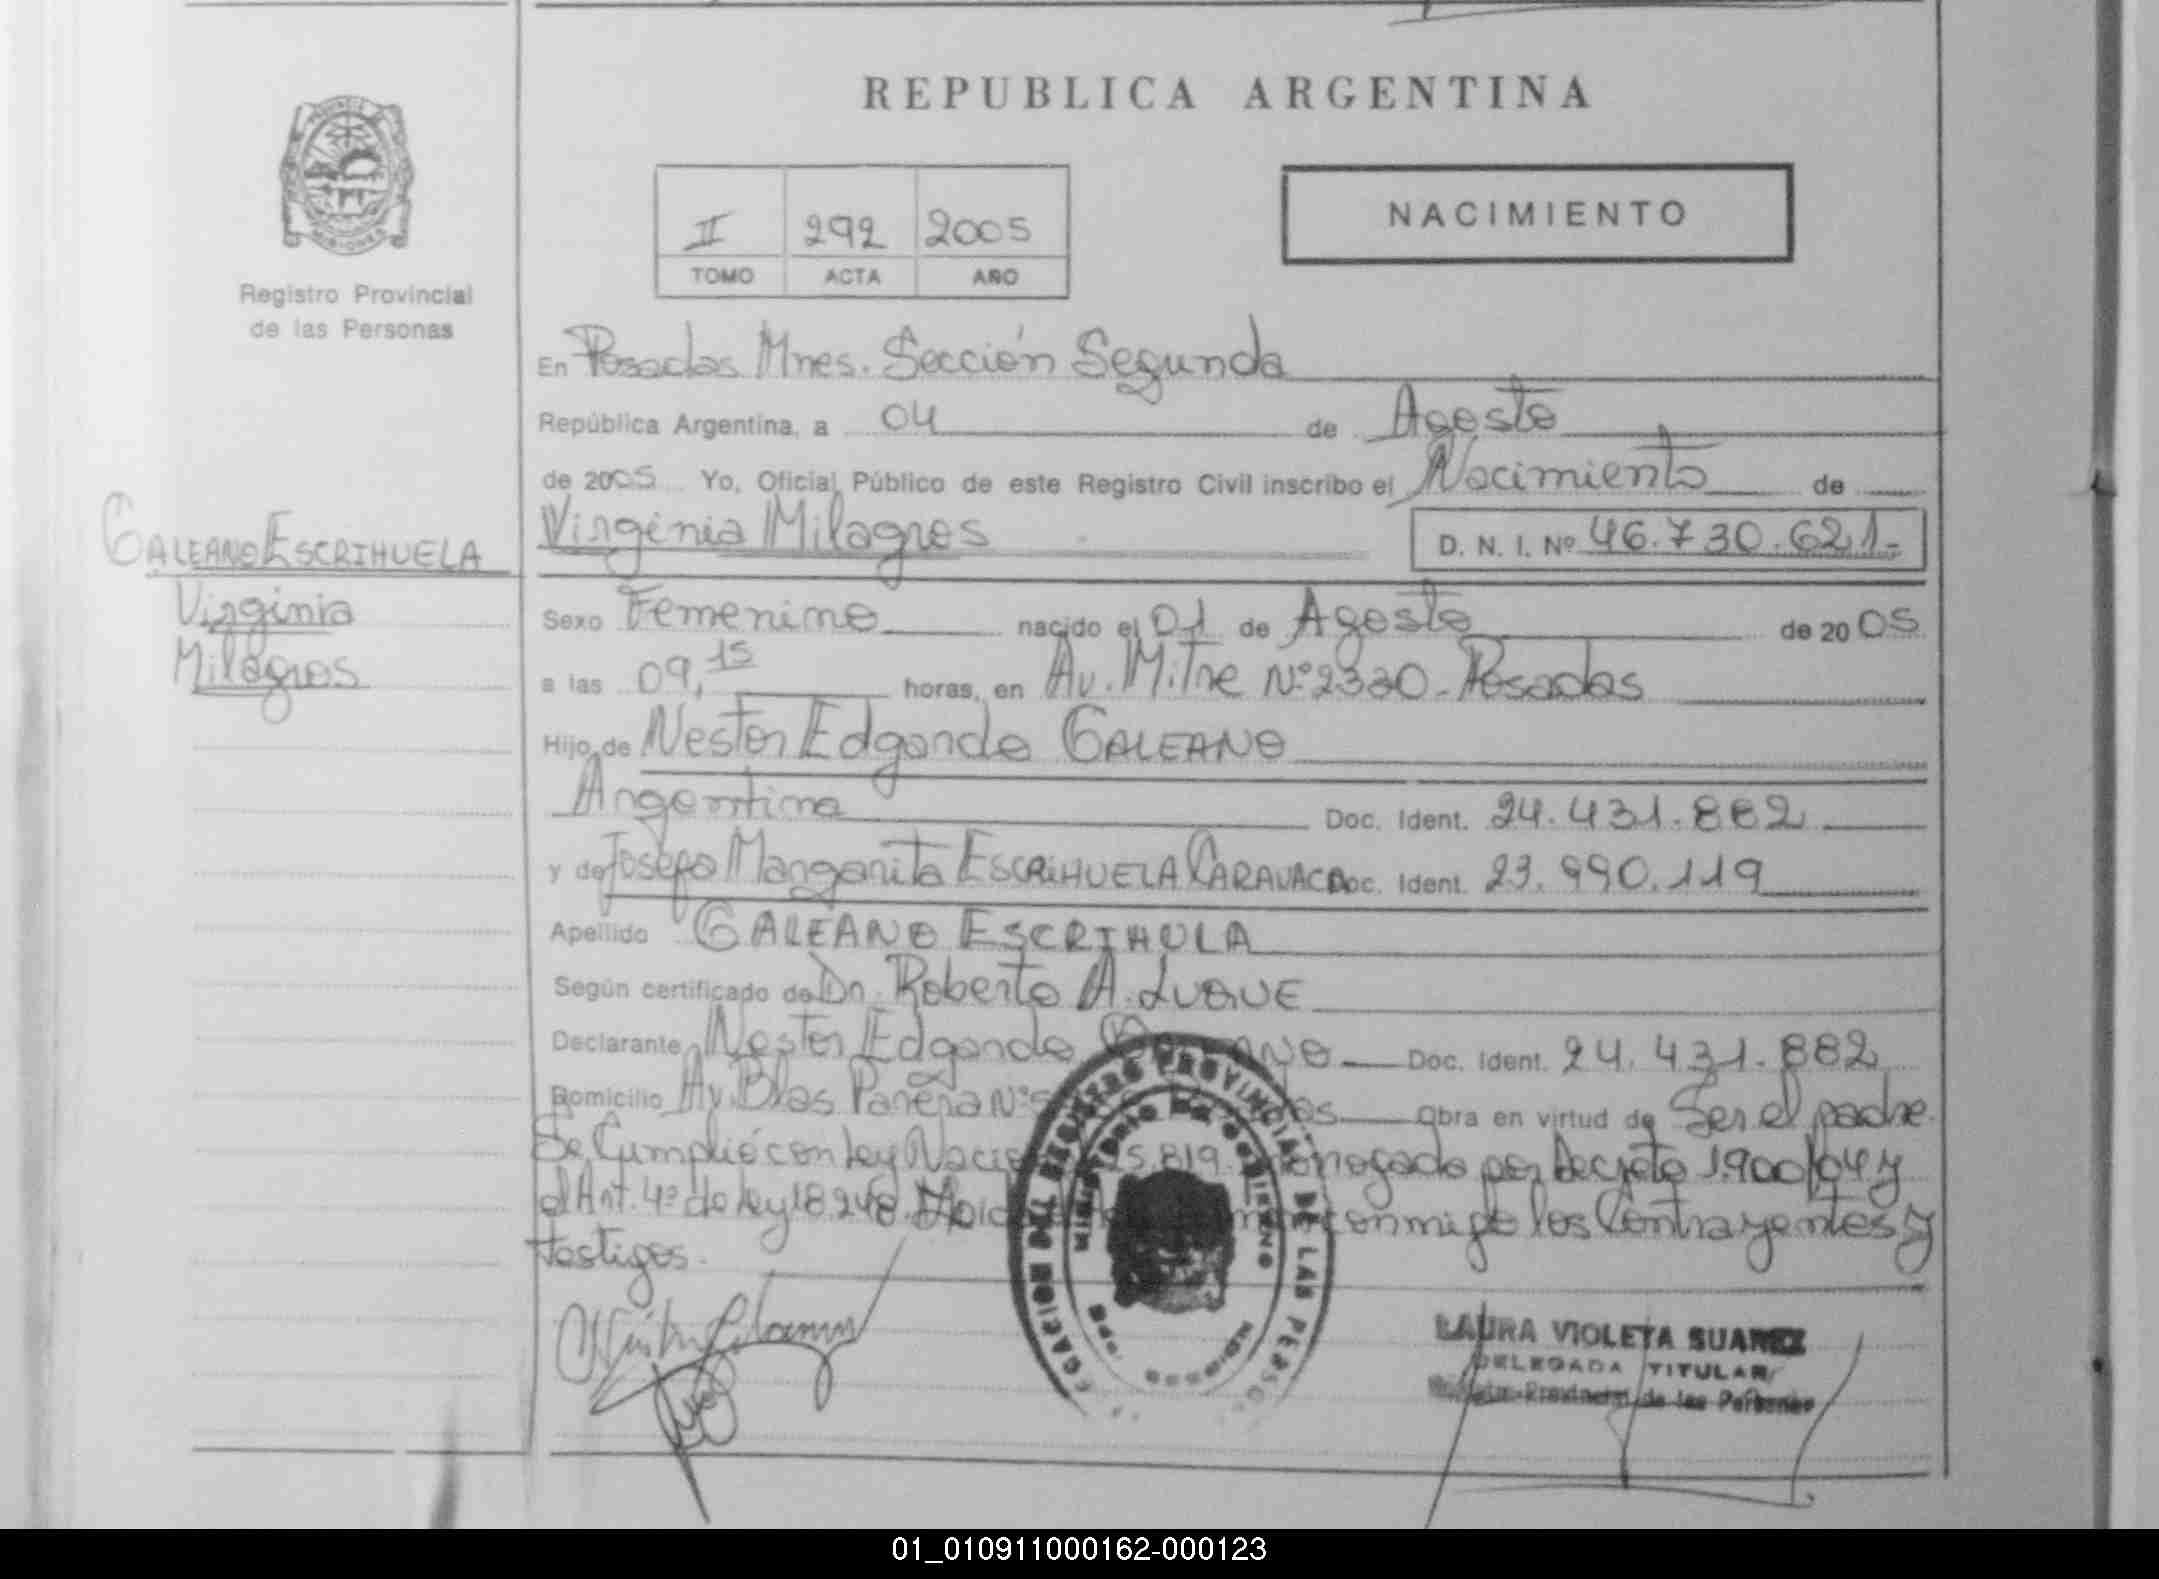 REPUBLICA ARGENTINA
PROVINCIA
MISIONES
Registro Provincial
de las Personas
II 292 2005
TOMO ACTA AÑO
NACIMIENTO
En Posadas Mnes. Sección Segunda
República Argentina, a 04 de Agosto
de 2005 Yo, Oficial Público de este Registro Civil inscribo el Nacimiento de
Virginia Milagros
D. N. I. Nº 46.730.621.-
GALEANO ESCRIHUELA
Virginia
Milagros
Sexo Femenino nacido el 01 de Agosto de 2005
a las 09,15 horas, en Av. Mitre Nº 2330 - Posadas
Hijo de Nestor Edgardo GALEANO
Argentina Doc. Ident. 24.431.882
y de Josefa Margarita ESCRIHUELA CARAVACA Doc. Ident. 23.990.119
Apellido GALEANO ESCRIHULA
Según certificado de Dr. Roberto A. LUQUE
Declarante Nestor Edgardo Doc. Ident. 24.431.882
Domicilio Av. Blas Parera Nº Obra en virtud de Ser el padre.
Se Cumplió con ley 25.819. por Decreto 1.900/04 y
el Art. 4º de ley 18.248. conmigo los Contrayentes y
testigos.
REGISTRO PROVINCIAL DE LAS PERSO
LAURA VIOLETA SUAREZ
DELEGADA TITULAR
Provincial de las Personas
01_010911000162-000123